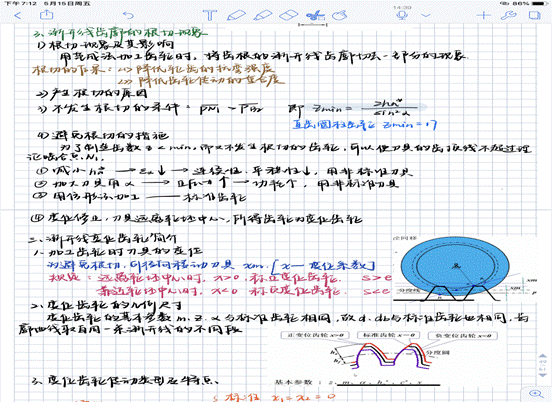 下午7:12 5月15日周五
14:39
86%
3、渐开线齿廓的根切现象
1) 根切现象及其影响
用范成法加工齿轮时,将齿根的渐开线齿廓切去一部分的现象
根切的后果:(1)降低轮齿的抗弯强度
(2)降低齿轮传动的重合度
2) 产生根切的原因
3) 不发生根切的条件: PN₁ > PB₂ 即 Zmin = 2ha*/sin²α
直齿圆柱齿轮 Zmin=17
4) 避免根切的措施
为了制造齿数 z<zmin,而又不发生根切的齿轮,可以使刀具的齿顶线不超过理论啮合点N₁
① 减小ha* → εα↓ → 连续性、平稳性↓,用非标准刀具
② 加大刀具角α → 功耗↑,用非标准刀具
③
④ 变位修正,刀具远离轮坯中心,所得齿轮为变位齿轮
二、渐开线变位齿轮简介
1、加工齿轮时刀具的变位
为避免根切,可径向移动刀具 xm [x—变位系数]
规定:远离轮坯中心时,x>0,称正变位齿轮. s>e
靠近轮坯中心时,x<0 称负变位齿轮. s<e
分度线
xm
2、变位齿轮的几何尺寸
变位齿轮的基本参数 m、z、α与标准齿轮相同,故d、db与标准齿轮也相同,齿
廓曲线取自同一条渐开线的不同段
正变位齿轮 x>0
标准齿轮 x=0
负变位齿轮 x<0
分度圆
3、变位齿轮传动类型及特点
基本参数:z、m、α、ha*、c*、x
标准 x₁=x₂=0